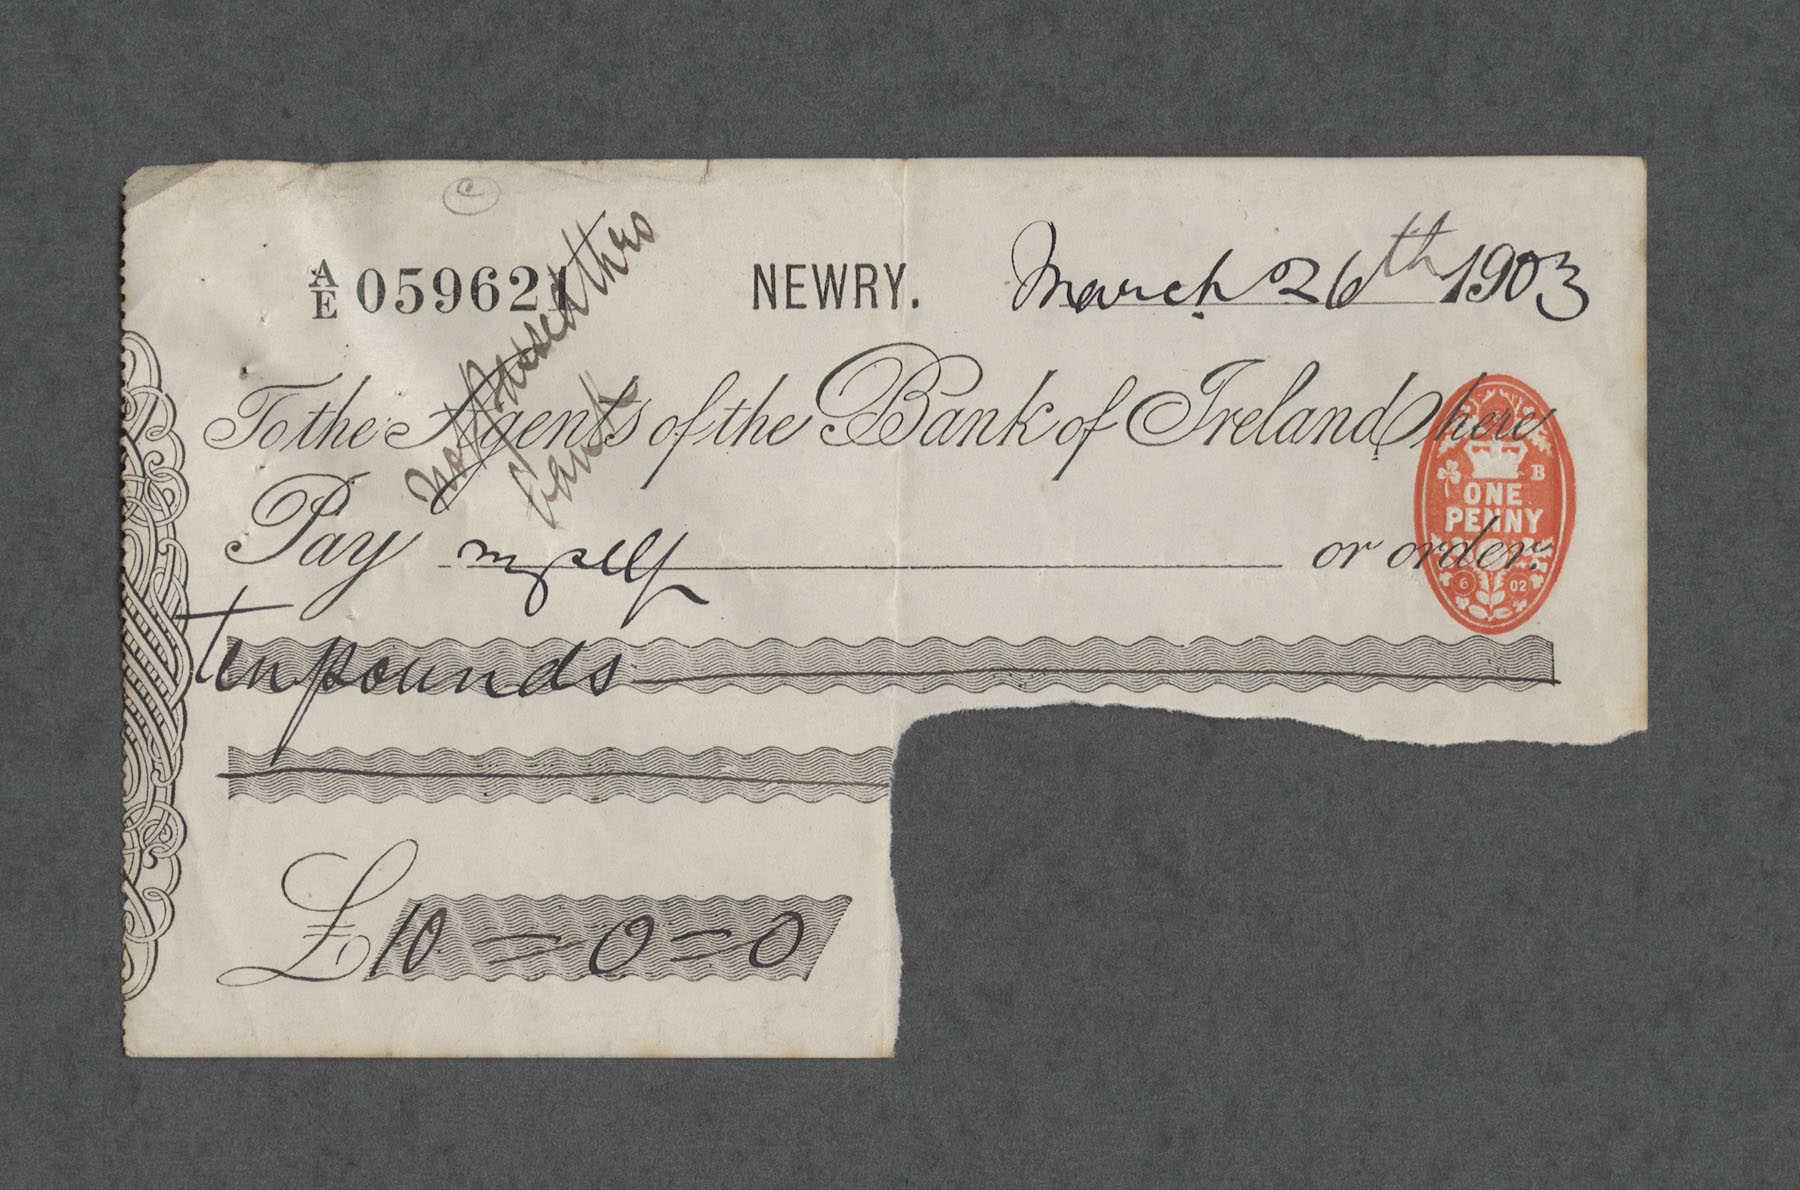 C
A/E 059621 NEWRY. March 26th 1903
To the Agents of the Bank of Ireland here
Pay myself or order.
Ten pounds
£10=0=0
bank
B
ONE
PENNY
6 02